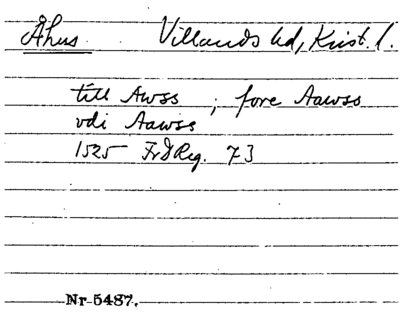 Åhus Villands hd, Krist. l.
till Awss ; fore Aawss
vdi Aawss
1525 FrIReg. 73
Nr 5487.